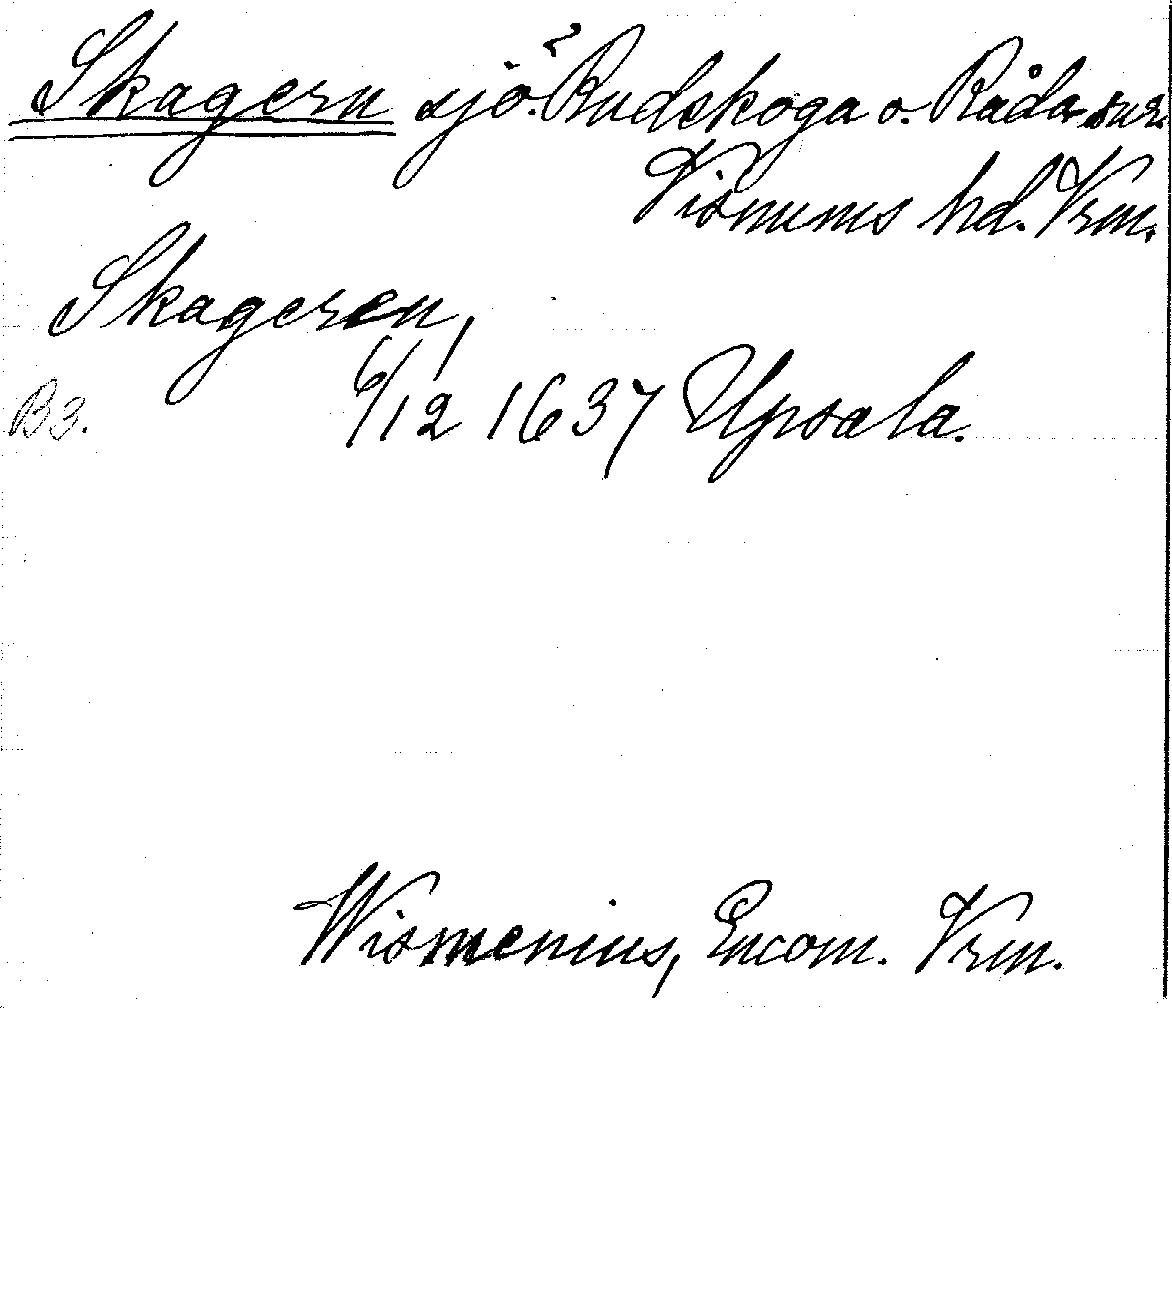 Skagern sjö. Rudskoga o. Råda snr.
Visnums hd. Vrm.
Skageren,
B3. 6/12 1637 Upsala.
Wismenius, Encom. Vrm.